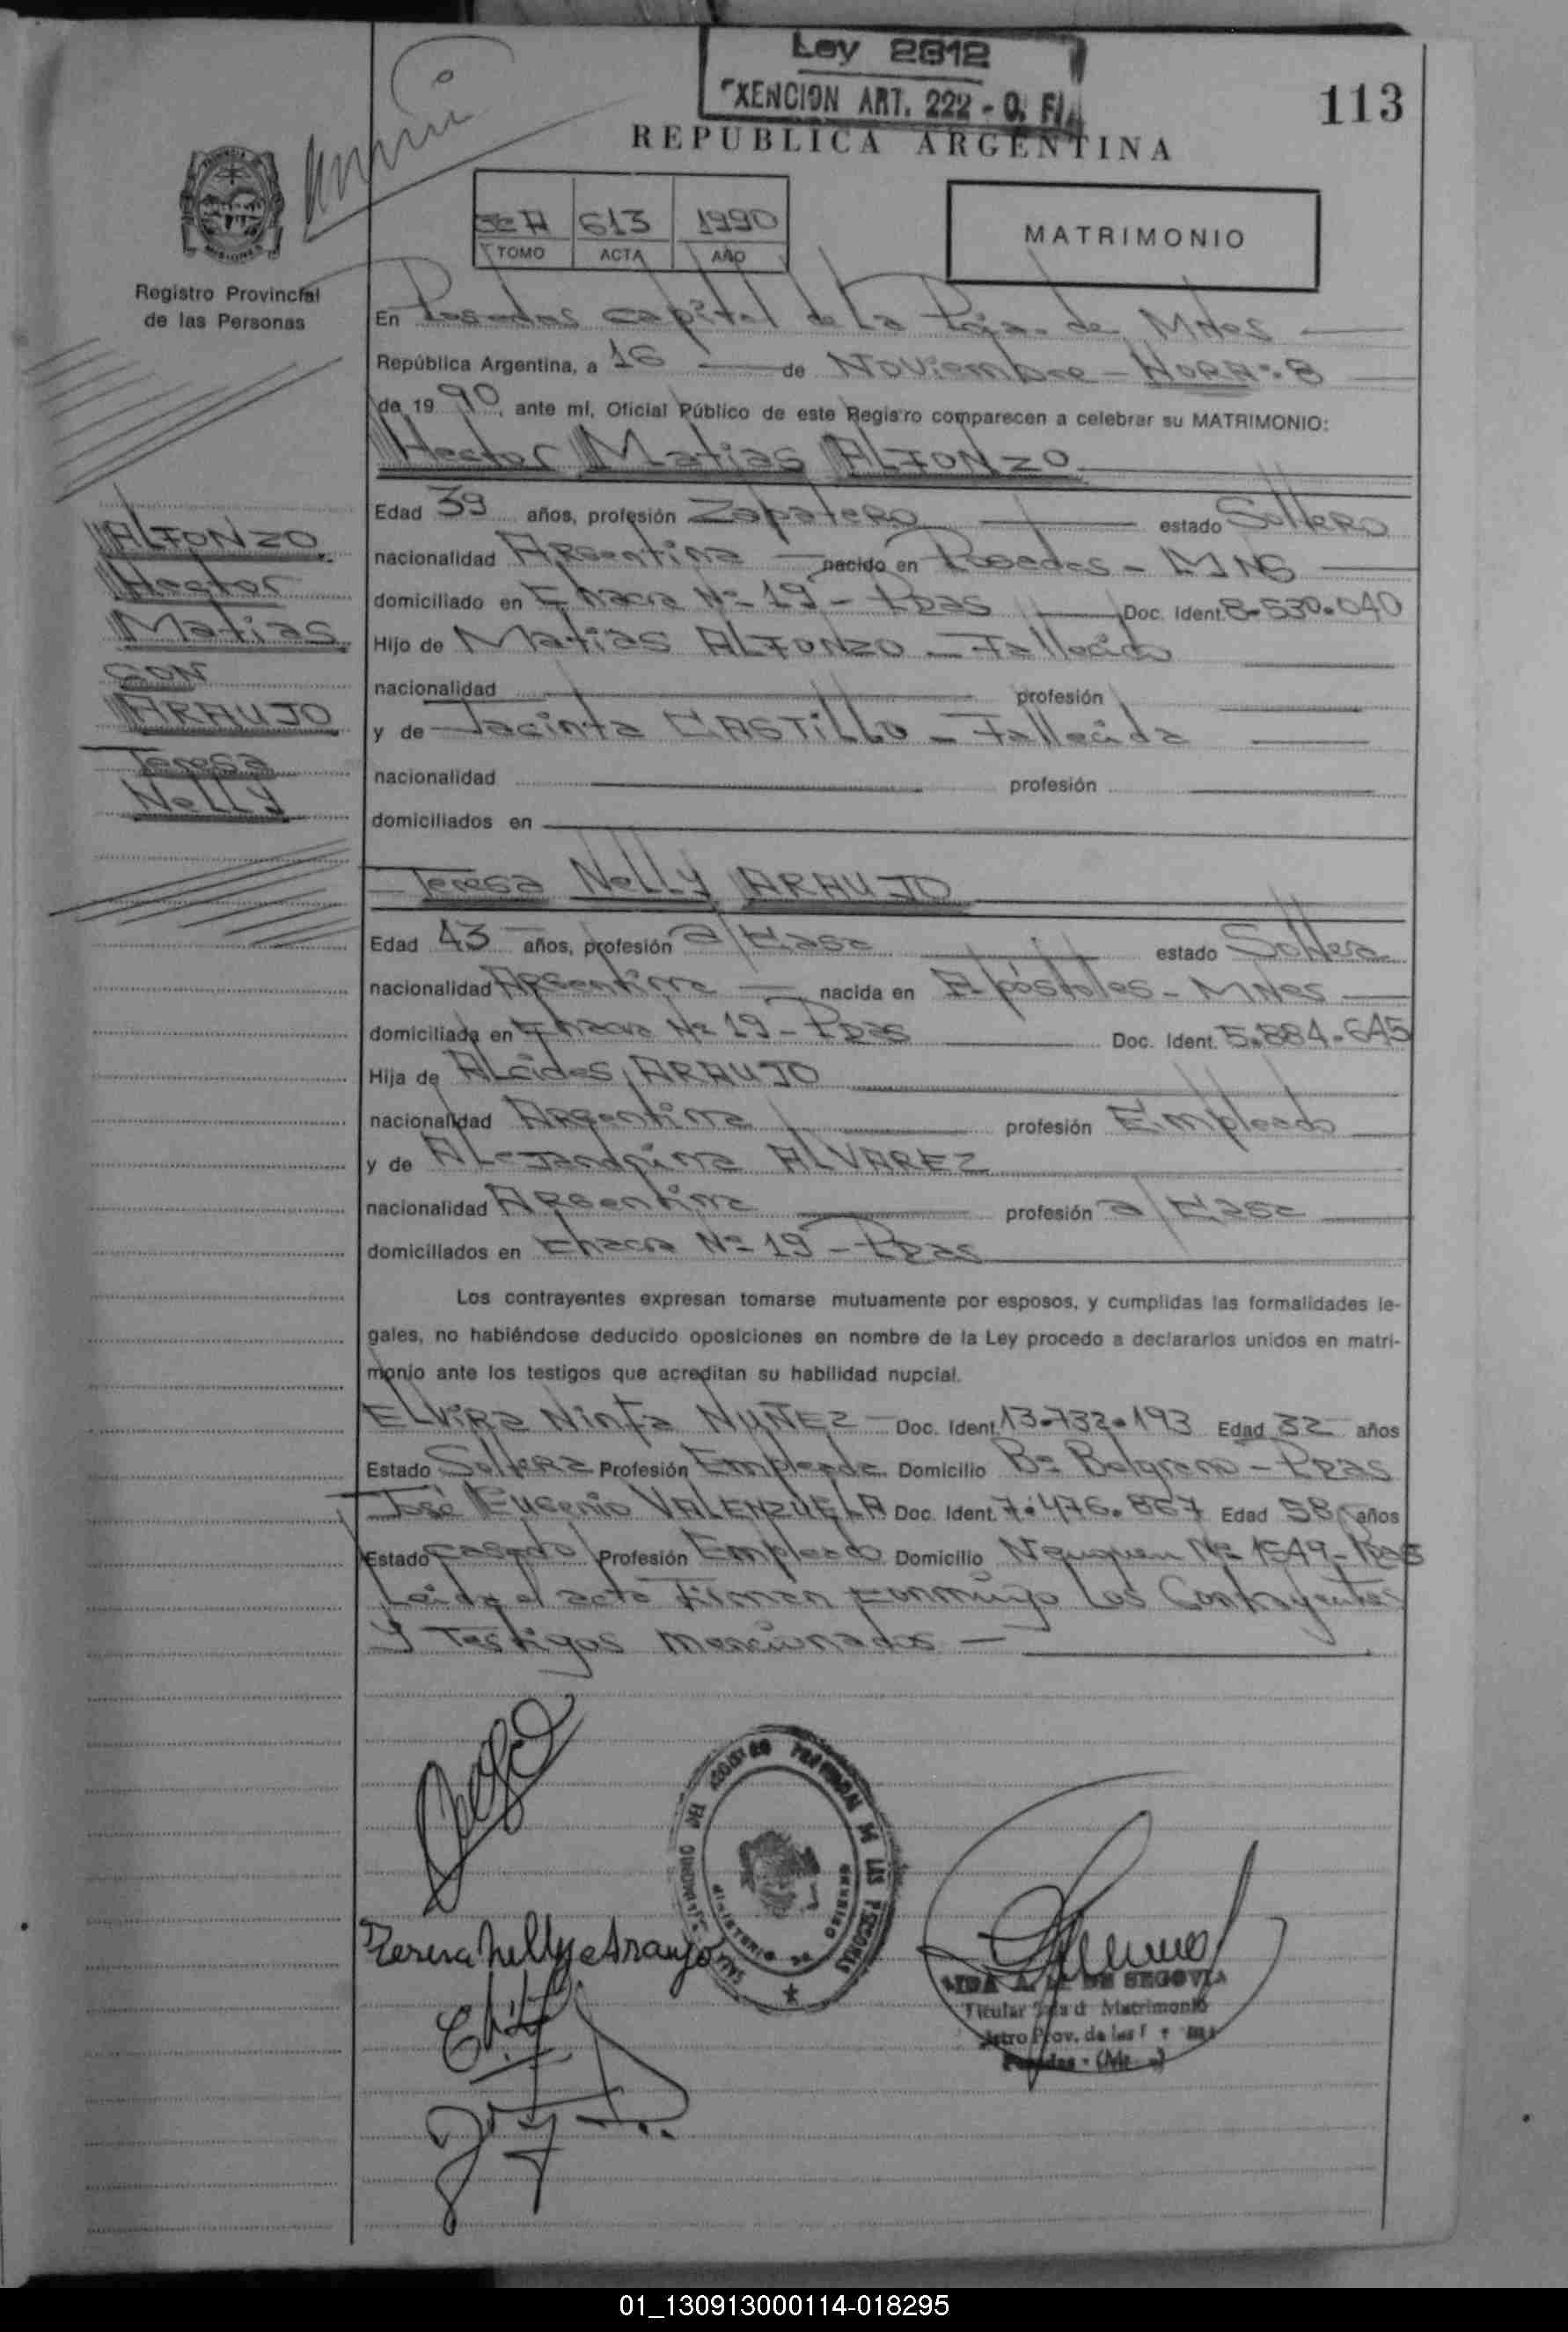 Ley 2812
EXENCION ART. 222 - O. F.
113
REPUBLICA ARGENTINA
613 1990
TOMO ACTA AÑO
MATRIMONIO
Registro Provincial
de las Personas
En Posadas capital de la Pcia. de Mnes
República Argentina, a 16 de Noviembre - HORA: 8
de 1990, ante mí, Oficial Público de este Registro comparecen a celebrar su MATRIMONIO:
Hector Matias ALFONZO
ALFONZO
Hector
Matias
CON
ARAUJO
Teresa
Nelly
Edad 39 años, profesión Zapatero estado Soltero
nacionalidad Argentina nacido en Posadas - MNS
domiciliado en Chacra Nº 19 - Pdas Doc. Ident. 8-530.040
Hijo de Matias ALFONZO - Fallecido
nacionalidad profesión
y de Jacinta CASTILLO - Fallecida
nacionalidad profesión
domiciliados en
Teresa Nelly ARAUJO
Edad 43 años, profesión a/casa estado Soltera
nacionalidad Argentina nacida en Apóstoles - Mnes
domiciliada en Chacra Nº 19 - Pdas Doc. Ident. 5.884.645
Hija de Alcides ARAUJO
nacionalidad Argentina profesión Empleado
y de Alejandrina ALVAREZ
nacionalidad Argentina profesión a/casa
domiciliados en Chacra Nº 19 - Pdas
Los contrayentes expresan tomarse mutuamente por esposos, y cumplidas las formalidades le-
gales, no habiéndose deducido oposiciones en nombre de la Ley procedo a declararlos unidos en matri-
monio ante los testigos que acreditan su habilidad nupcial.
Elvira Ninfa NUÑEZ - Doc. Ident. 13.732.193 Edad 32 años
Estado Soltera Profesión Empleada Domicilio Bº Belgrano - Pdas
José Eugenio VALENZUELA Doc. Ident. 7.476.867 Edad 58 años
Estado casado Profesión Empleado Domicilio Neuquen Nº 1549 - Pdas
Leida el acta Firman conmigo Los Contrayentes
y Testigos mencionados -
Teresa Nelly Araujo
DE SEGOVIA
Titular Matrimonio
Prov. de las
Posadas
01_130913000114-018295